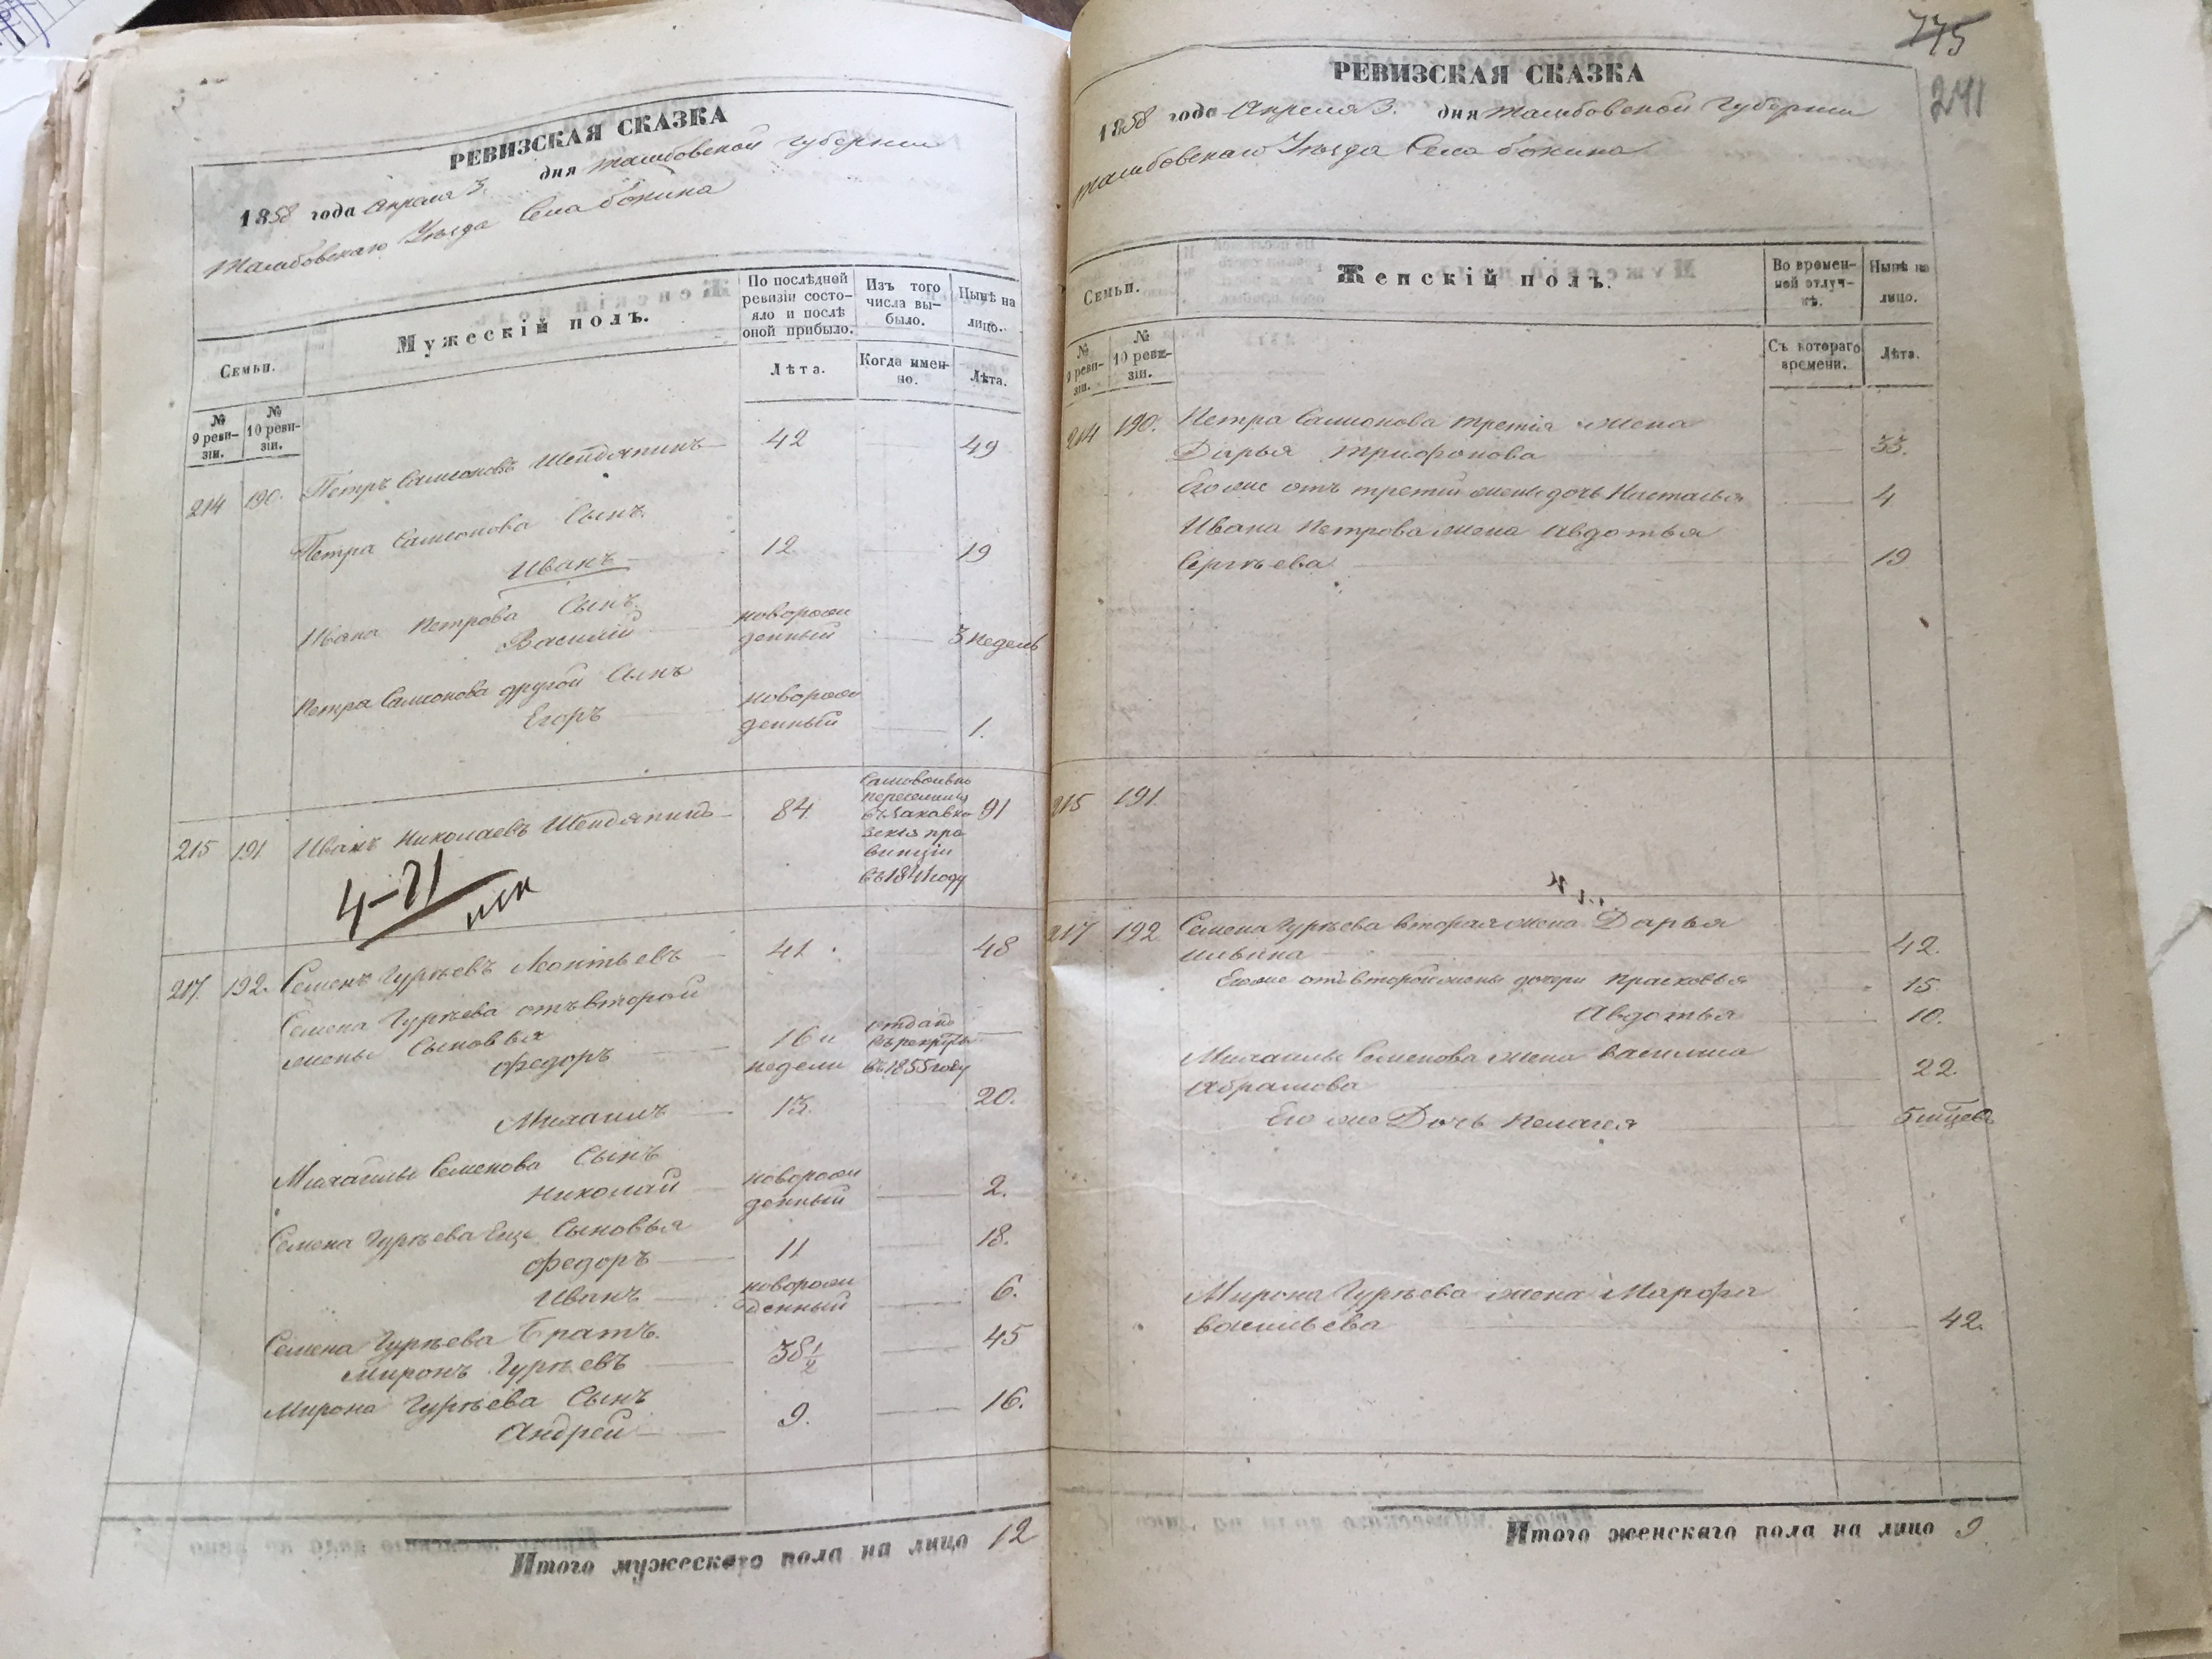 РЕВИЗСКАЯ СКАЗКА
1858 года Апреля 3. дня Тамбовской губернии
Тамбовскаго Уѣзда Села Бокина
Семьи.
Мужескій полъ.
По послѣдней ревизіи состояло и послѣ оной прибыло.
Изъ того числа выбыло.
Нынѣ на лицо.
№ 9 ревизіи.
№ 10 ревизіи.
Лѣта.
Когда именно.
Лѣта.
214 190. Петръ Самсоновъ Шендяпинъ 42 49
Петра Самсонова Сынъ
Иванъ 12 19
Ивана Петрова Сынъ
Василій новорожденный 3 недель
Петра Самсонова другой Сынъ
Егоръ новорожденный 1.
215 191 Иванъ Николаевъ Шендяпинъ 84 91
Самовольно
въ 1841 году
4-21
217. 192. Семенъ Гурѣевъ Леонтьевъ 41 48
Семена Гурѣева отъ второй
жены Сыновья
Федоръ 16 и недели отдано въ рекруты въ 1855 году
Михаилъ 13. 20.
Михаилы Семенова Сынъ
Николай новорожденный 2.
Семена Гурѣева Еще Сыновья
Федоръ 11 18.
Иванъ новорожденный 6.
Семена Гурѣева Братъ
Миронъ Гурѣевъ 38 1/2 45
Мирона Гурѣева Сынъ
Андрей 9. 16.
Итого мужескаго пола на лицо 12
775
241
РЕВИЗСКАЯ СКАЗКА
1858 года Апреля 3. дня Тамбовской Губернии
Тамбовскаго Уѣзда Села Бокина
Семьи.
Женскій полъ.
Во временной отлучкѣ.
Нынѣ на лицо.
№ 9 ревизіи.
№ 10 ревизіи.
Съ котораго времени.
Лѣта.
214 190. Петра Самсонова третія жена
Дарья Трифонова 33.
Его же отъ третей жены дочь Настасья 4
Ивана Петрова жена Авдотья
Сергѣева 19
215 191
217 192 Семена Гурѣева вторая жена Дарья
Ильина 42.
Его же отъ второй жены дочери Прасковья 15.
Авдотья 10.
Михаилы Семенова жена Василиса
Абрамова 22.
Его же Дочь Пелагея 5 мцев
Мирона Гурѣева жена Марфа
Васильева 42.
Итого женскаго пола на лицо 9